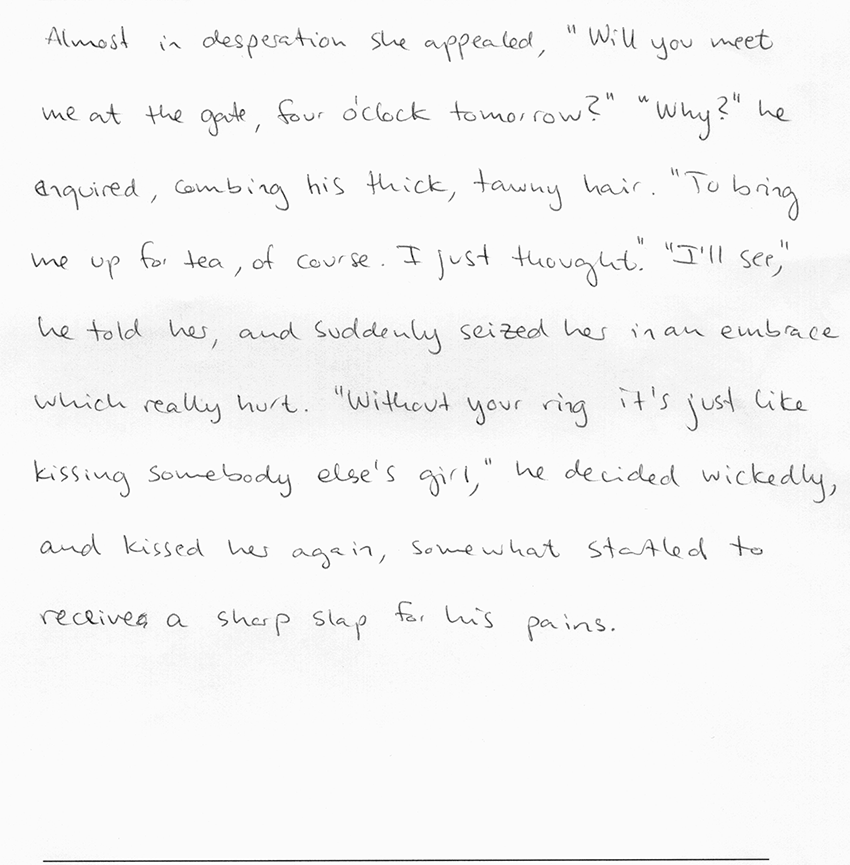 Almost in desperation she appealed, "Will you meet
me at the gate, four o'clock tomorrow?" "Why?" he
enquired, combing his thick, tawny hair. "To bring
me up for tea, of course. I just thought." "I'll see,"
he told her, and suddenly seized her in an embrace
which really hurt. "Without your ring it's just like
kissing somebody else's girl," he decided wickedly,
and kissed her again, somewhat startled to
receive a sharp slap for his pains.